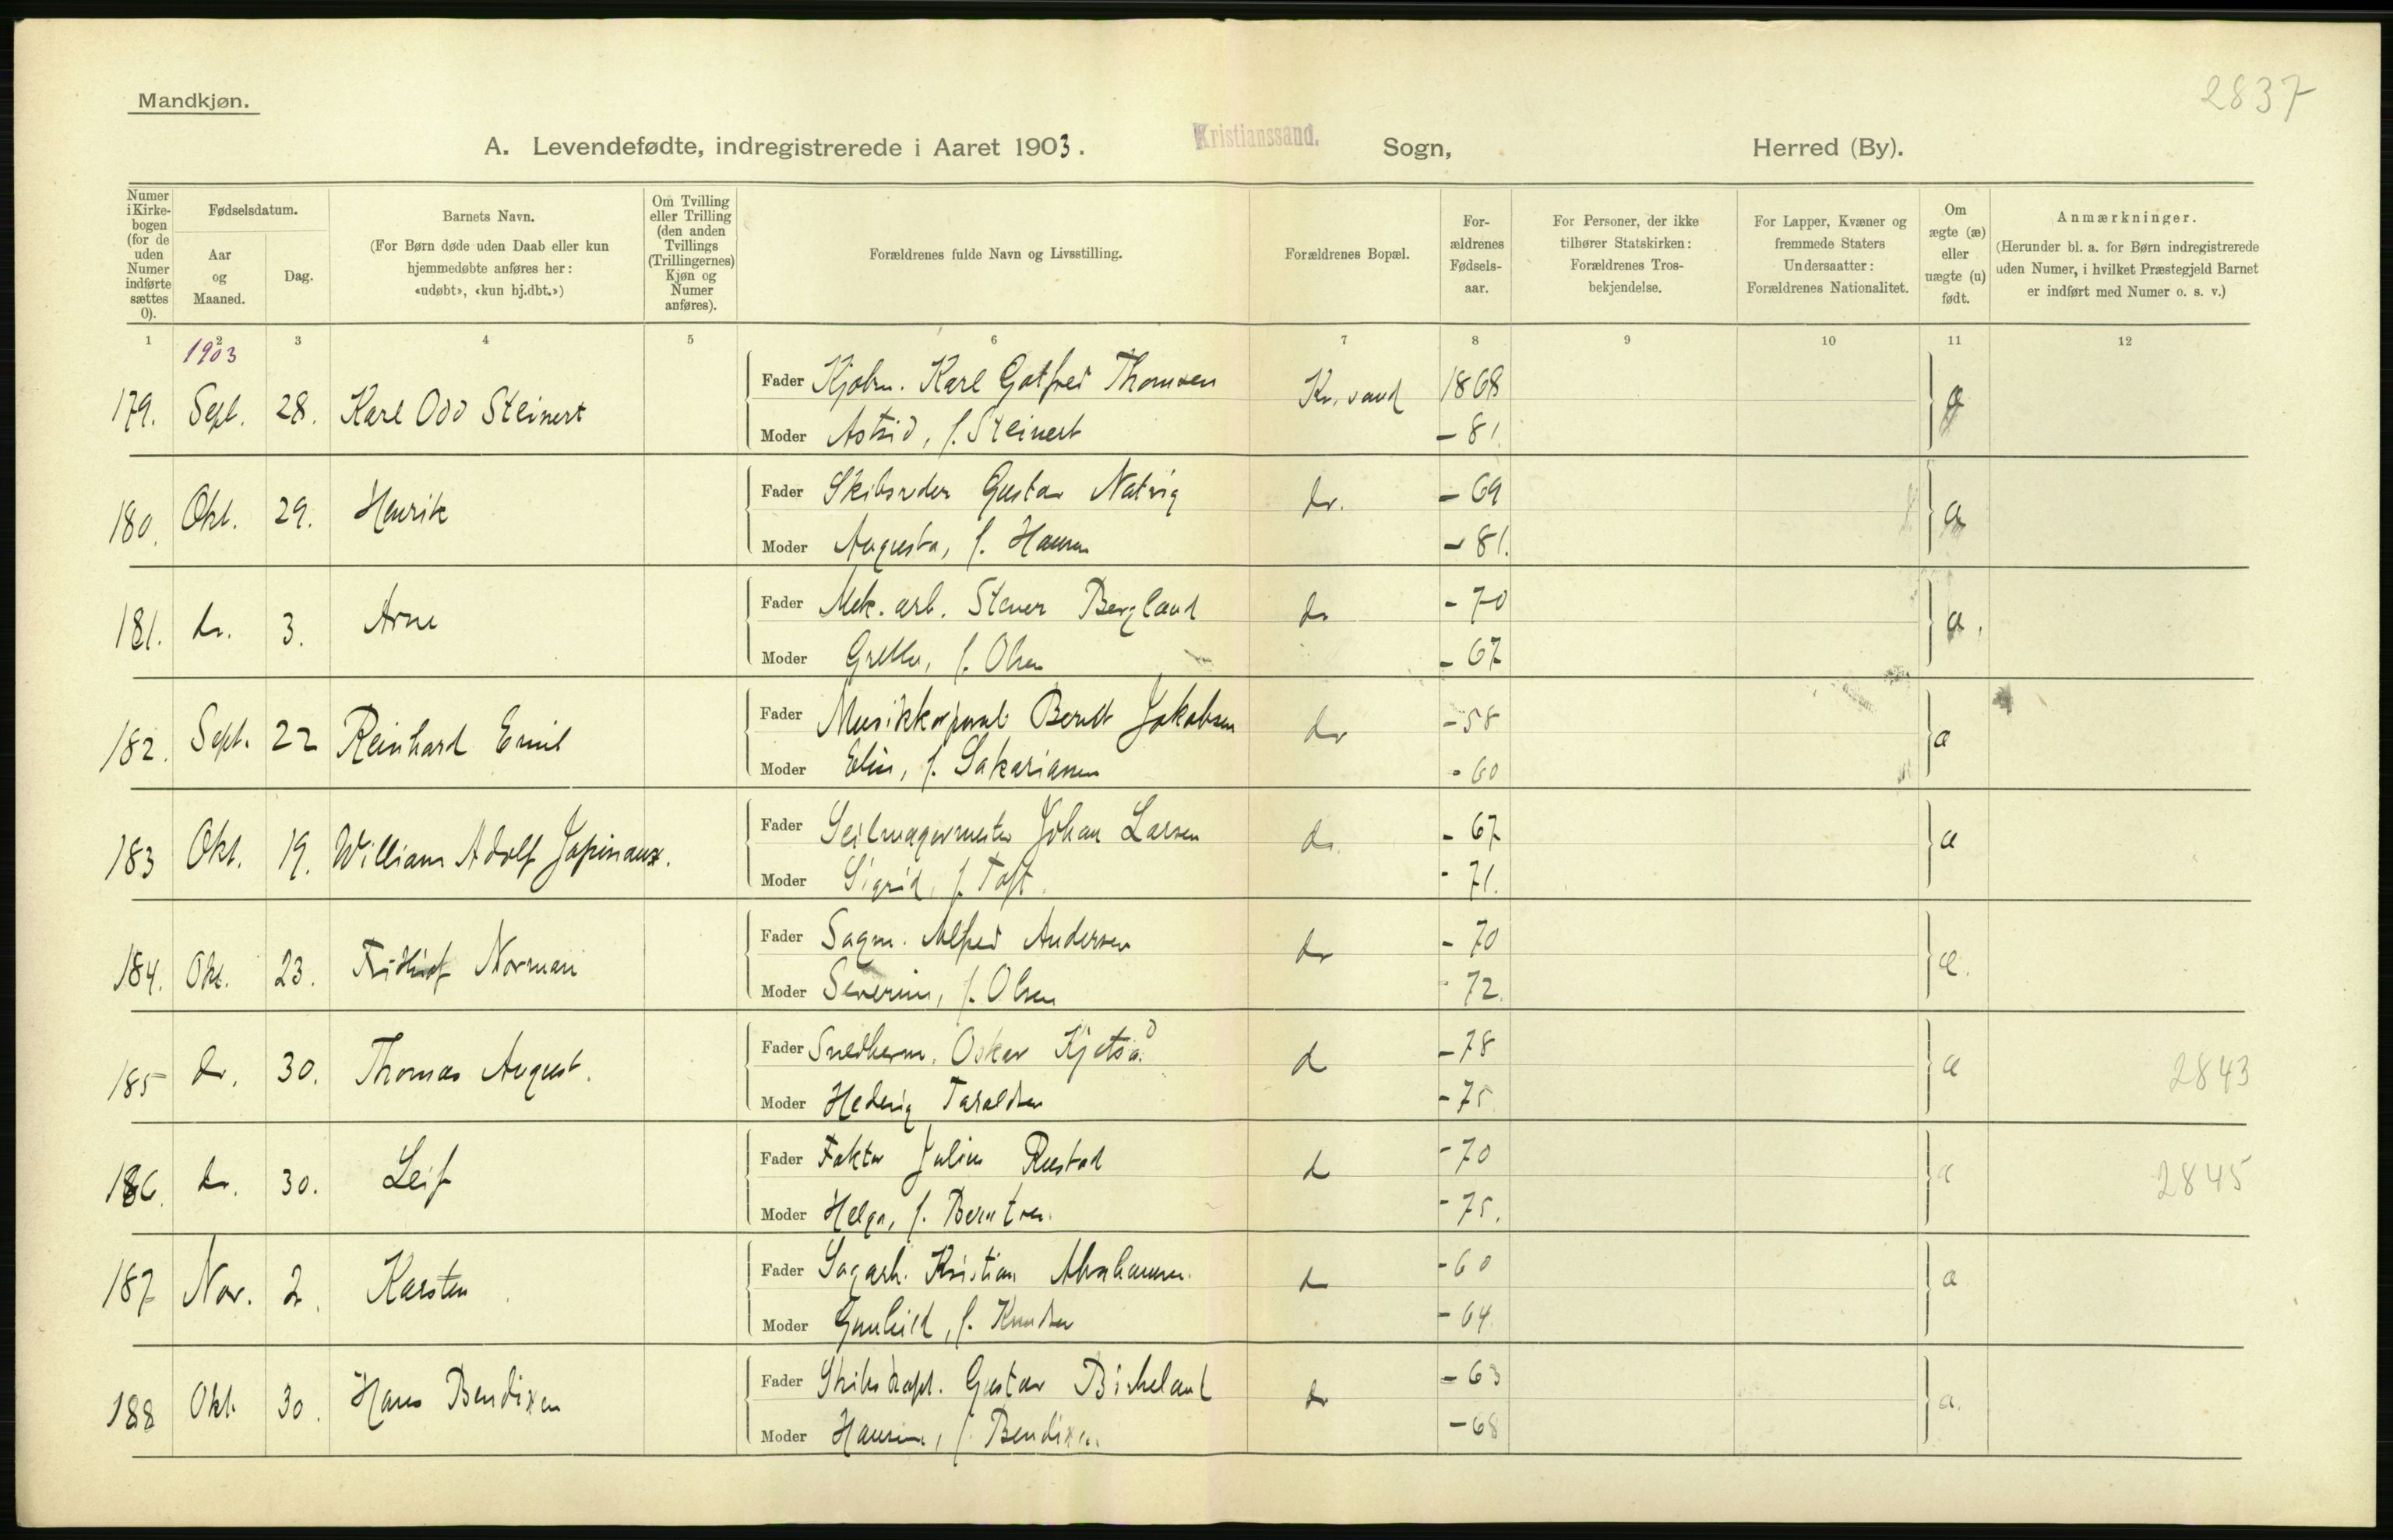 2837
Mandkjøn.
A. Levendefødte, indregistrerede i Aaret 1903. Kristianssand. Sogn, Herred (By).
Numer i Kirke-bogen (for de uden Numer indførte sættes 0).
Fødselsdatum.
Aar og Maaned.
Dag.
Barnets Navn.
(For Børn døde uden Daab eller kun
hjemmedøbte anføres her:
«udøbt», «kun hj.dbt.»)
Om Tvilling
eller Trilling
(den anden
Tvillings
(Trillingernes)
Kjøn og
Numer
anføres).
Forældrenes fulde Navn og Livsstilling.
Forældrenes Bopæl.
For-
ældrenes
Fødsels-
aar.
For Personer, der ikke
tilhører Statskirken:
Forældrenes Tros-
bekjendelse.
For Lapper, Kvæner og
fremmede Staters
Undersaatter:
Forældrenes Nationalitet.
Om
ægte (æ)
eller
uægte (u)
født.
Anmærkninger.
(Herunder bl. a. for Børn indregistrerede
uden Numer, i hvilket Præstegjeld Barnet
er indført med Numer o. s. v.)
1 2 3 4 5 6 7 8 9 10 11 12
1903
179. Sept. 28. Karl Odd Steinert Fader Kjøbm. Karl Gotfred Thomsen Kr.sand 1868 æ
Moder Astrid, f. Steinert - 81.
180. Okt. 29. Henrik Fader Skibsreder Gustav Natvig do. - 69 æ
Moder Augusta, f. Hansen - 81.
181. do. 3. Arne Fader Mek. arb. Stener Bergland do - 70 æ.
Moder Grethe, f. Olsen - 67
182. Sept. 22 Reinhard Emil Fader Musikkorporal Berndt Jakobsen do - 58 æ
Moder Elin, f. Sakariassen - 60
183 Okt. 19. William Adolf Fader Seilmagermester Johan Larsen do. - 67 æ
Moder Sigrid, f. Toft. - 71.
184. Okt. 23. Fridthjof Norman Fader Sagm. Alfred Andersen do - 70 æ.
Moder Severine, f. Olsen - 72.
185 do. 30. Thomas August. Fader Snedkerm. Oskar Kjetså d - 78 æ 2843
Moder Hedvig Taraldsen - 75.
186. do. 30. Leif Fader Faktor Julius Rustad d - 70 æ 2845
Moder Helga, f. Berntsen. - 75.
187 Nov. 2. Karsten Fader Sagarb. Kristian Abrahamsen. d - 60 æ
Moder Gunhild, f. Knudsen - 64.
188 Okt. 30. Hans Bendixen Fader Skibskapt. Gustav Birkeland do - 63 æ.
Moder Hansine, f. Bendixen. - 68